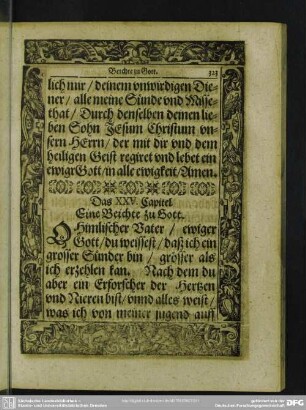 Beichte zu Gott. 323
lich mir / deinem vnwirdigen Die-
ner / alle meine Sünde vnd Misse-
that / Durch denselben deinen lie-
ben Sohn Jesum Christum vn-
sern HErrn / der mit dir vnd dem
heiligen Geist regiret vnd lebet ein
ewiger Gott / in alle ewigkeit / Amen.
Das XXV. Capitel
Eine Beichte zu Gott.
O Himlischer Vater / ewiger
Gott / du weissest / daß ich ein
grosser Sünder bin / grösser als
ich erzehlen kan. Nach dem du
aber ein Erforscher der Hertzen
vnd Nieren bist / vnnd alles weist /
was ich von meiner jugend auff